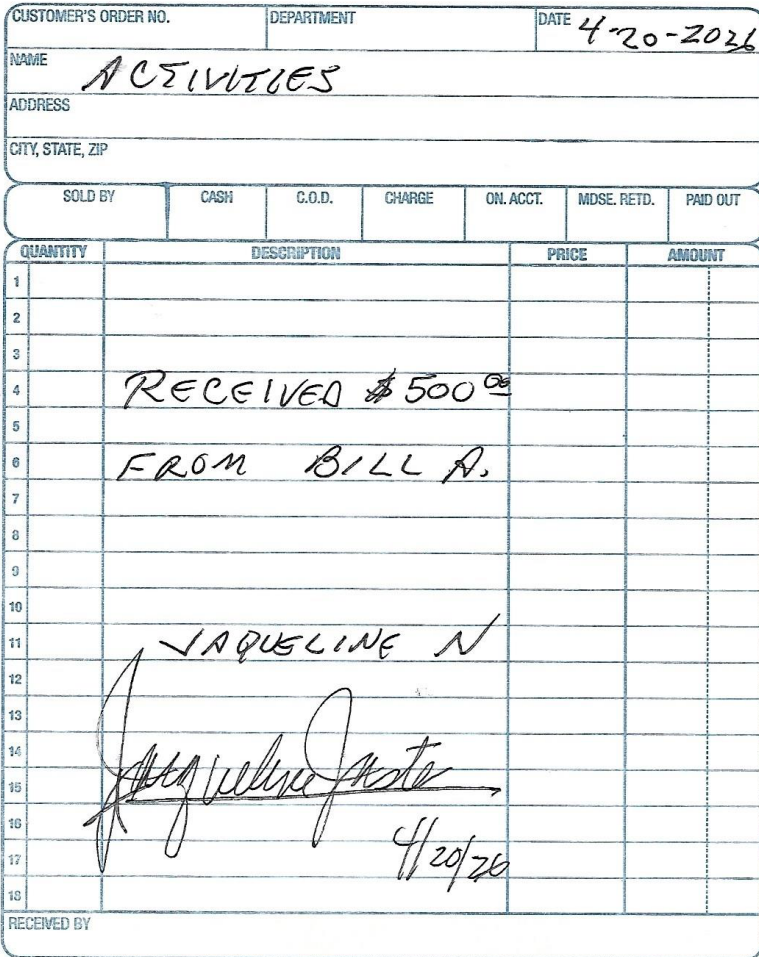 CUSTOMER'S ORDER NO. DEPARTMENT DATE 4-20-2026
NAME ACTIVITIES
ADDRESS
CITY, STATE, ZIP
SOLD BY CASH C.O.D. CHARGE ON. ACCT. MDSE. RETD. PAID OUT
QUANTITY DESCRIPTION PRICE AMOUNT
1
2
3
4 RECEIVED $500 00
5
6 FROM BILL A.
7
8
9
10
11 JAQUELINE N
12
13
14
15 Jacqueline
16
17 4/20/26
18
RECEIVED BY